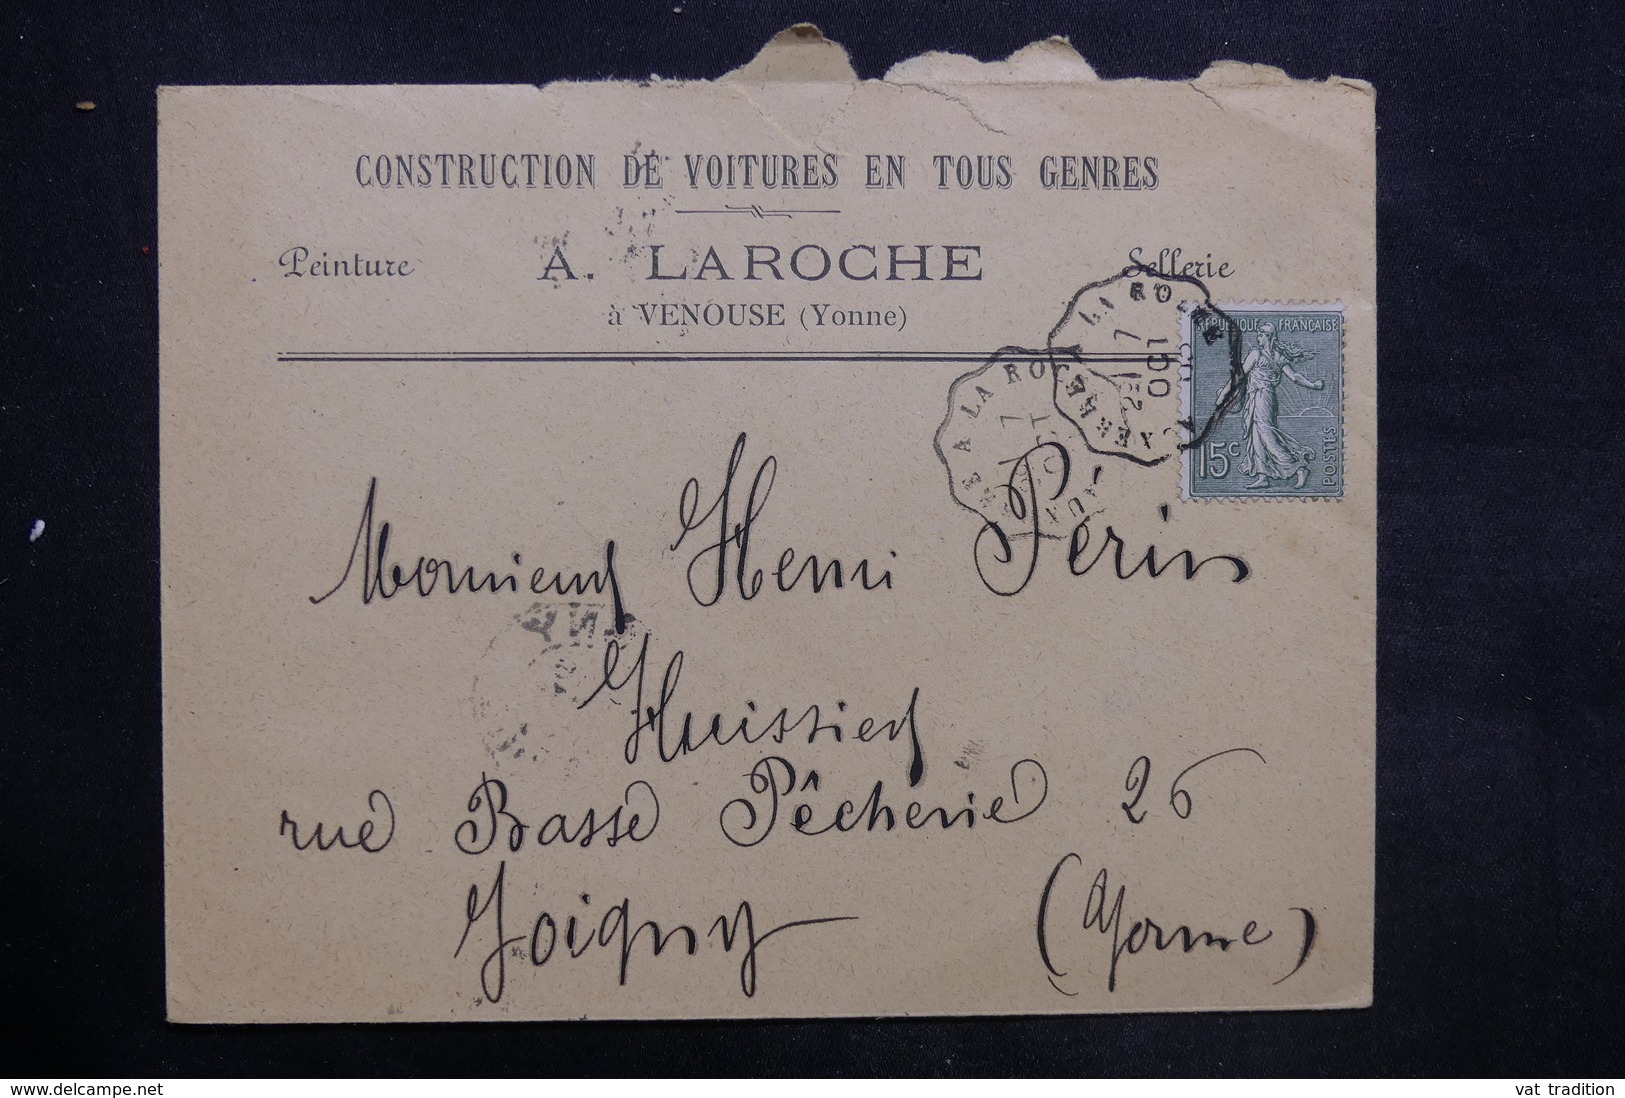 CONSTRUCTION DE VOITURES EN TOUS GENRES
Peinture A. LAROCHE Sellerie
à VENOUSE (Yonne)
A LA ROCHE
RÉPUBLIQUE FRANÇAISE
15c
POSTES
Monsieur Henri Périn
Huissier
rue Basse Pêcherie 26
Joigny (Yonne)
www.delcampe.net
vat_tradition